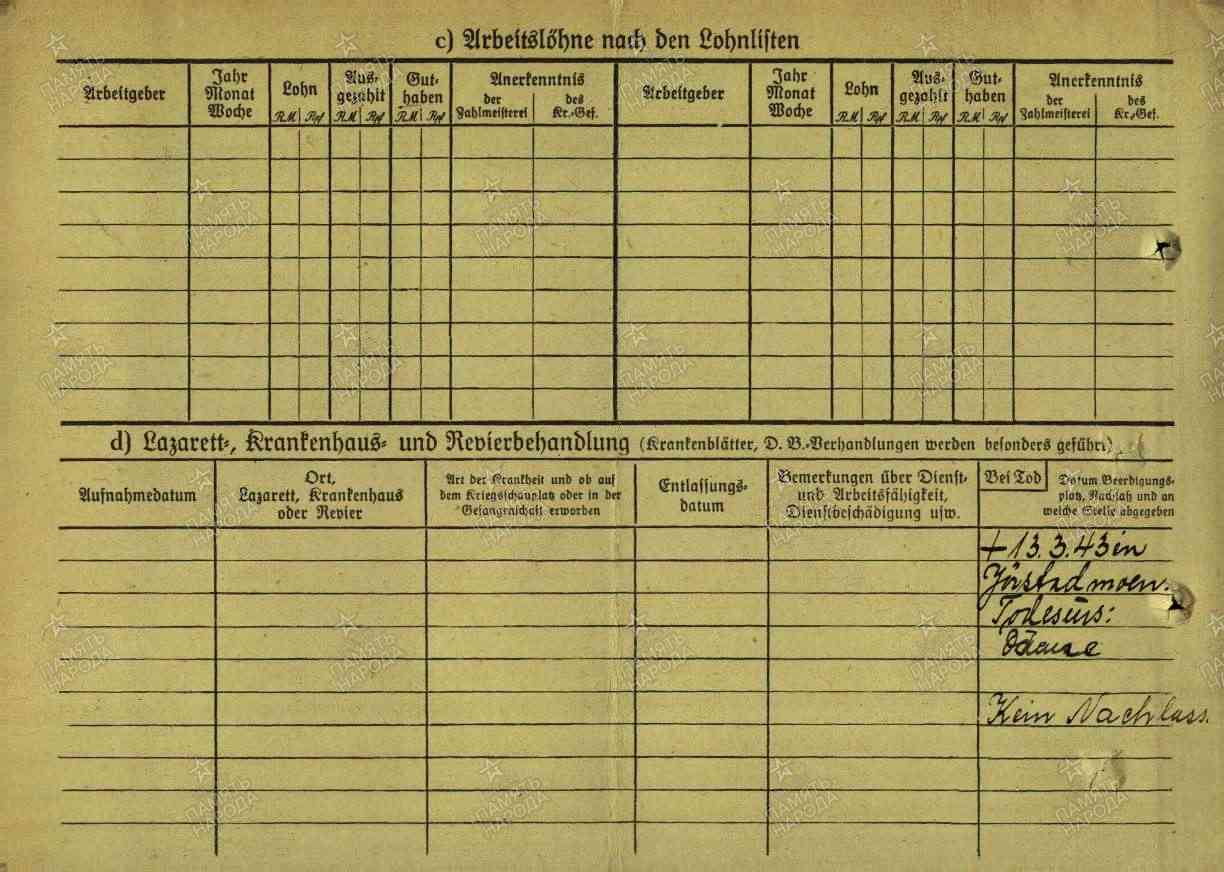 c) Arbeitslöhne nach den Lohnlisten
Arbeitgeber
Jahr
Monat
Woche
Lohn
RM Rpf
Aus-
gezahlt
RM Rpf
Gut-
haben
RM Rpf
Anerkenntnis
der
Zahlmeisterei
des
Kr.-Gef.
Arbeitgeber
Jahr
Monat
Woche
Lohn
RM Rpf
Aus-
gezahlt
RM Rpf
Gut-
haben
RM Rpf
Anerkenntnis
der
Zahlmeisterei
des
Kr.-Gef.
d) Lazarett-, Krankenhaus- und Revierbehandlung (Krankenblätter, D. B.-Verhandlungen werden besonders geführt)
Aufnahmedatum
Ort,
Lazarett, Krankenhaus
oder Revier
Art der Krankheit und ob auf
dem Kriegsschauplatz oder in der
Gefangenschaft erworben
Entlassungs-
datum
Bemerkungen über Dienst-
und Arbeitsfähigkeit,
Dienstbeschädigung usw.
Bei Tod
Datum Beerdigungs-
platz, Nachlaß und an
welche Stelle abgegeben
+ 13. 3. 43 in
Jörstadmoen.
Todesurs:
Ödeme
Kein Nachlass.
ПАМЯТЬ
НАРОДА